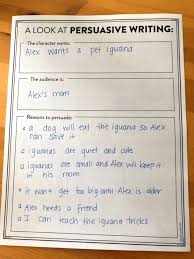 A LOOK AT PERSUASIVE WRITING:
The character wants:
Alex wants a pet iguana
The audience is:
Alex's mom
Reasons to persuade:
a dog will eat the iguana so Alex
can save it
iguanas are quiet and cute
iguanas are small and Alex will keep it
in his room
it won't get too big until Alex is older
Alex needs a friend
I can teach the iguana tricks